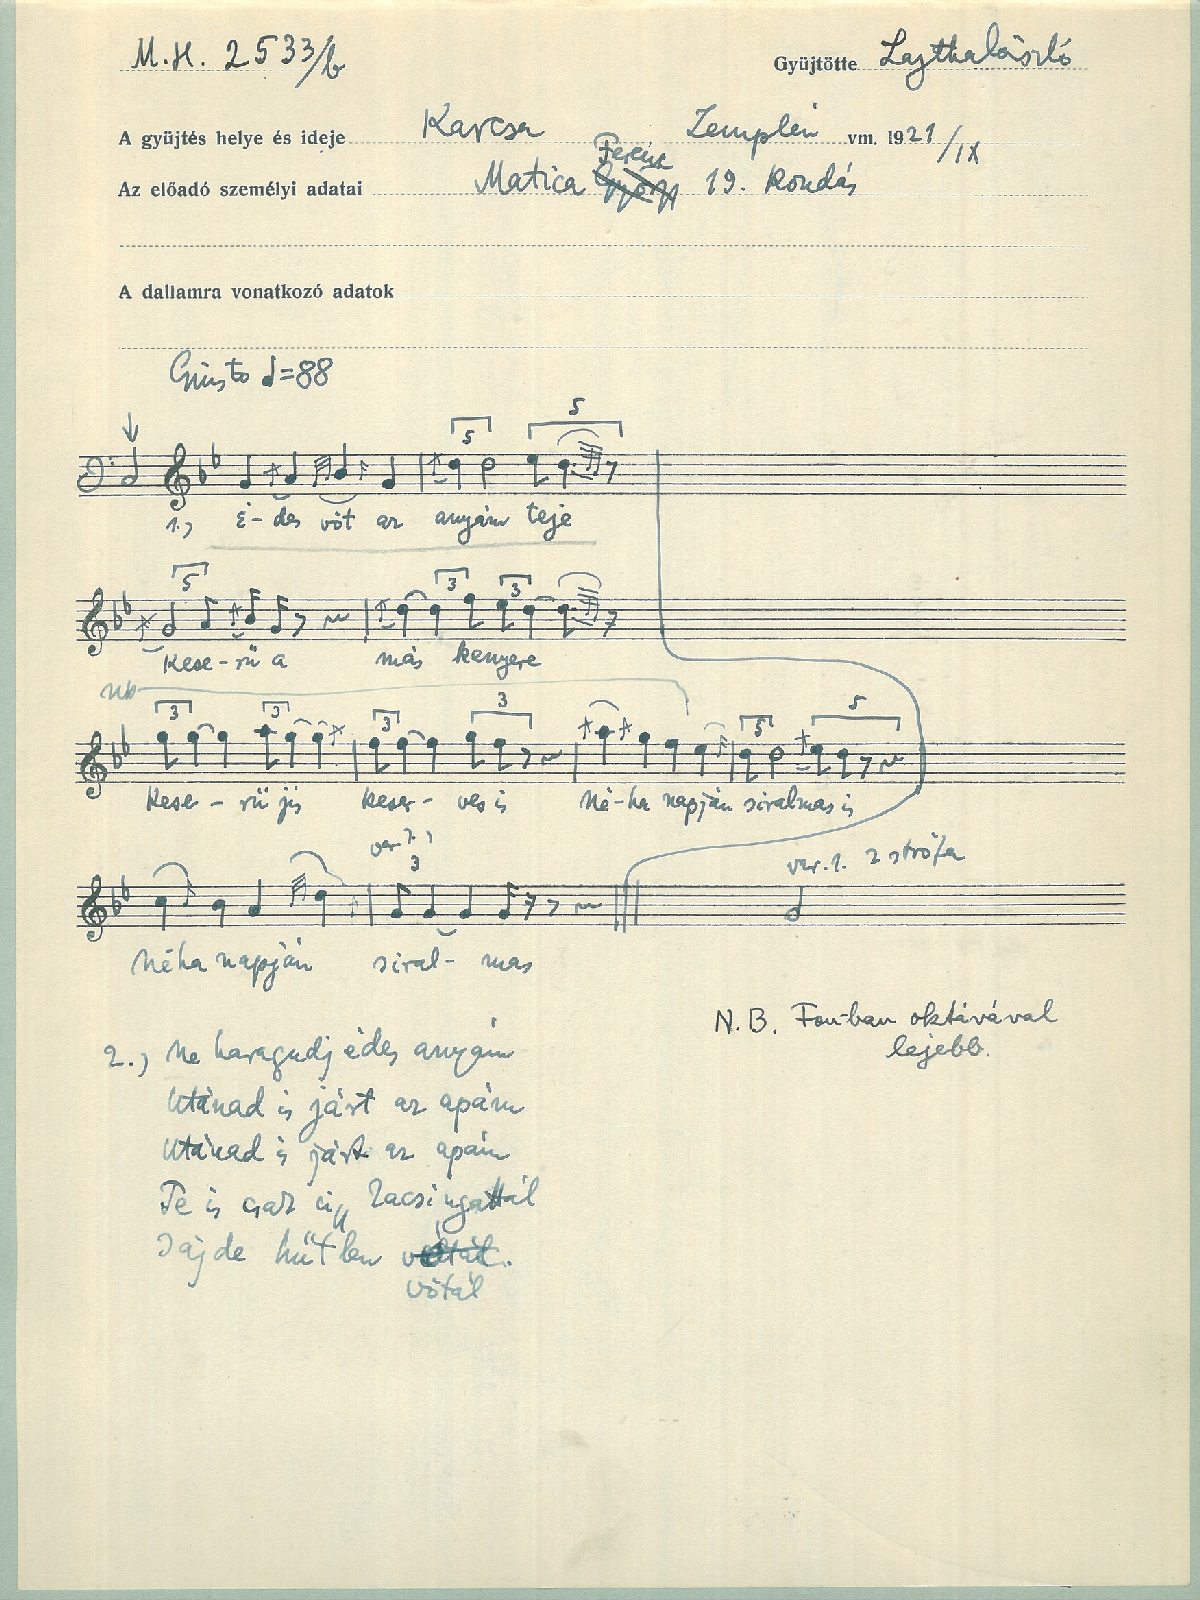 M.H. 2533/b
Gyüjtötte Lajtha László
A gyüjtés helye és ideje Karcsa Zemplén vm. 1921/IX
Ferenc
Az előadó személyi adatai Matica György 19. Kondás
A dallamra vonatkozó adatok
Giusto ♩=88
5 5
1., É-des vót az anyám teje
5 3 3
Kese-rü a más kenyere
Nb
3 3 3 3 5 5
Kese-rü jis keser-ves is Né-ha napján siralmas is
var. 1., 3
var. 1. 2 strófa
Néha napján siral-mas
N.B. Fon-ban oktávával
lejebb.
2., Ne haragudj édes anyám
Utánad is járt az apám
Utánad is járt az apám
Te is csak
Jajde hűtlen vóltál.
vótál